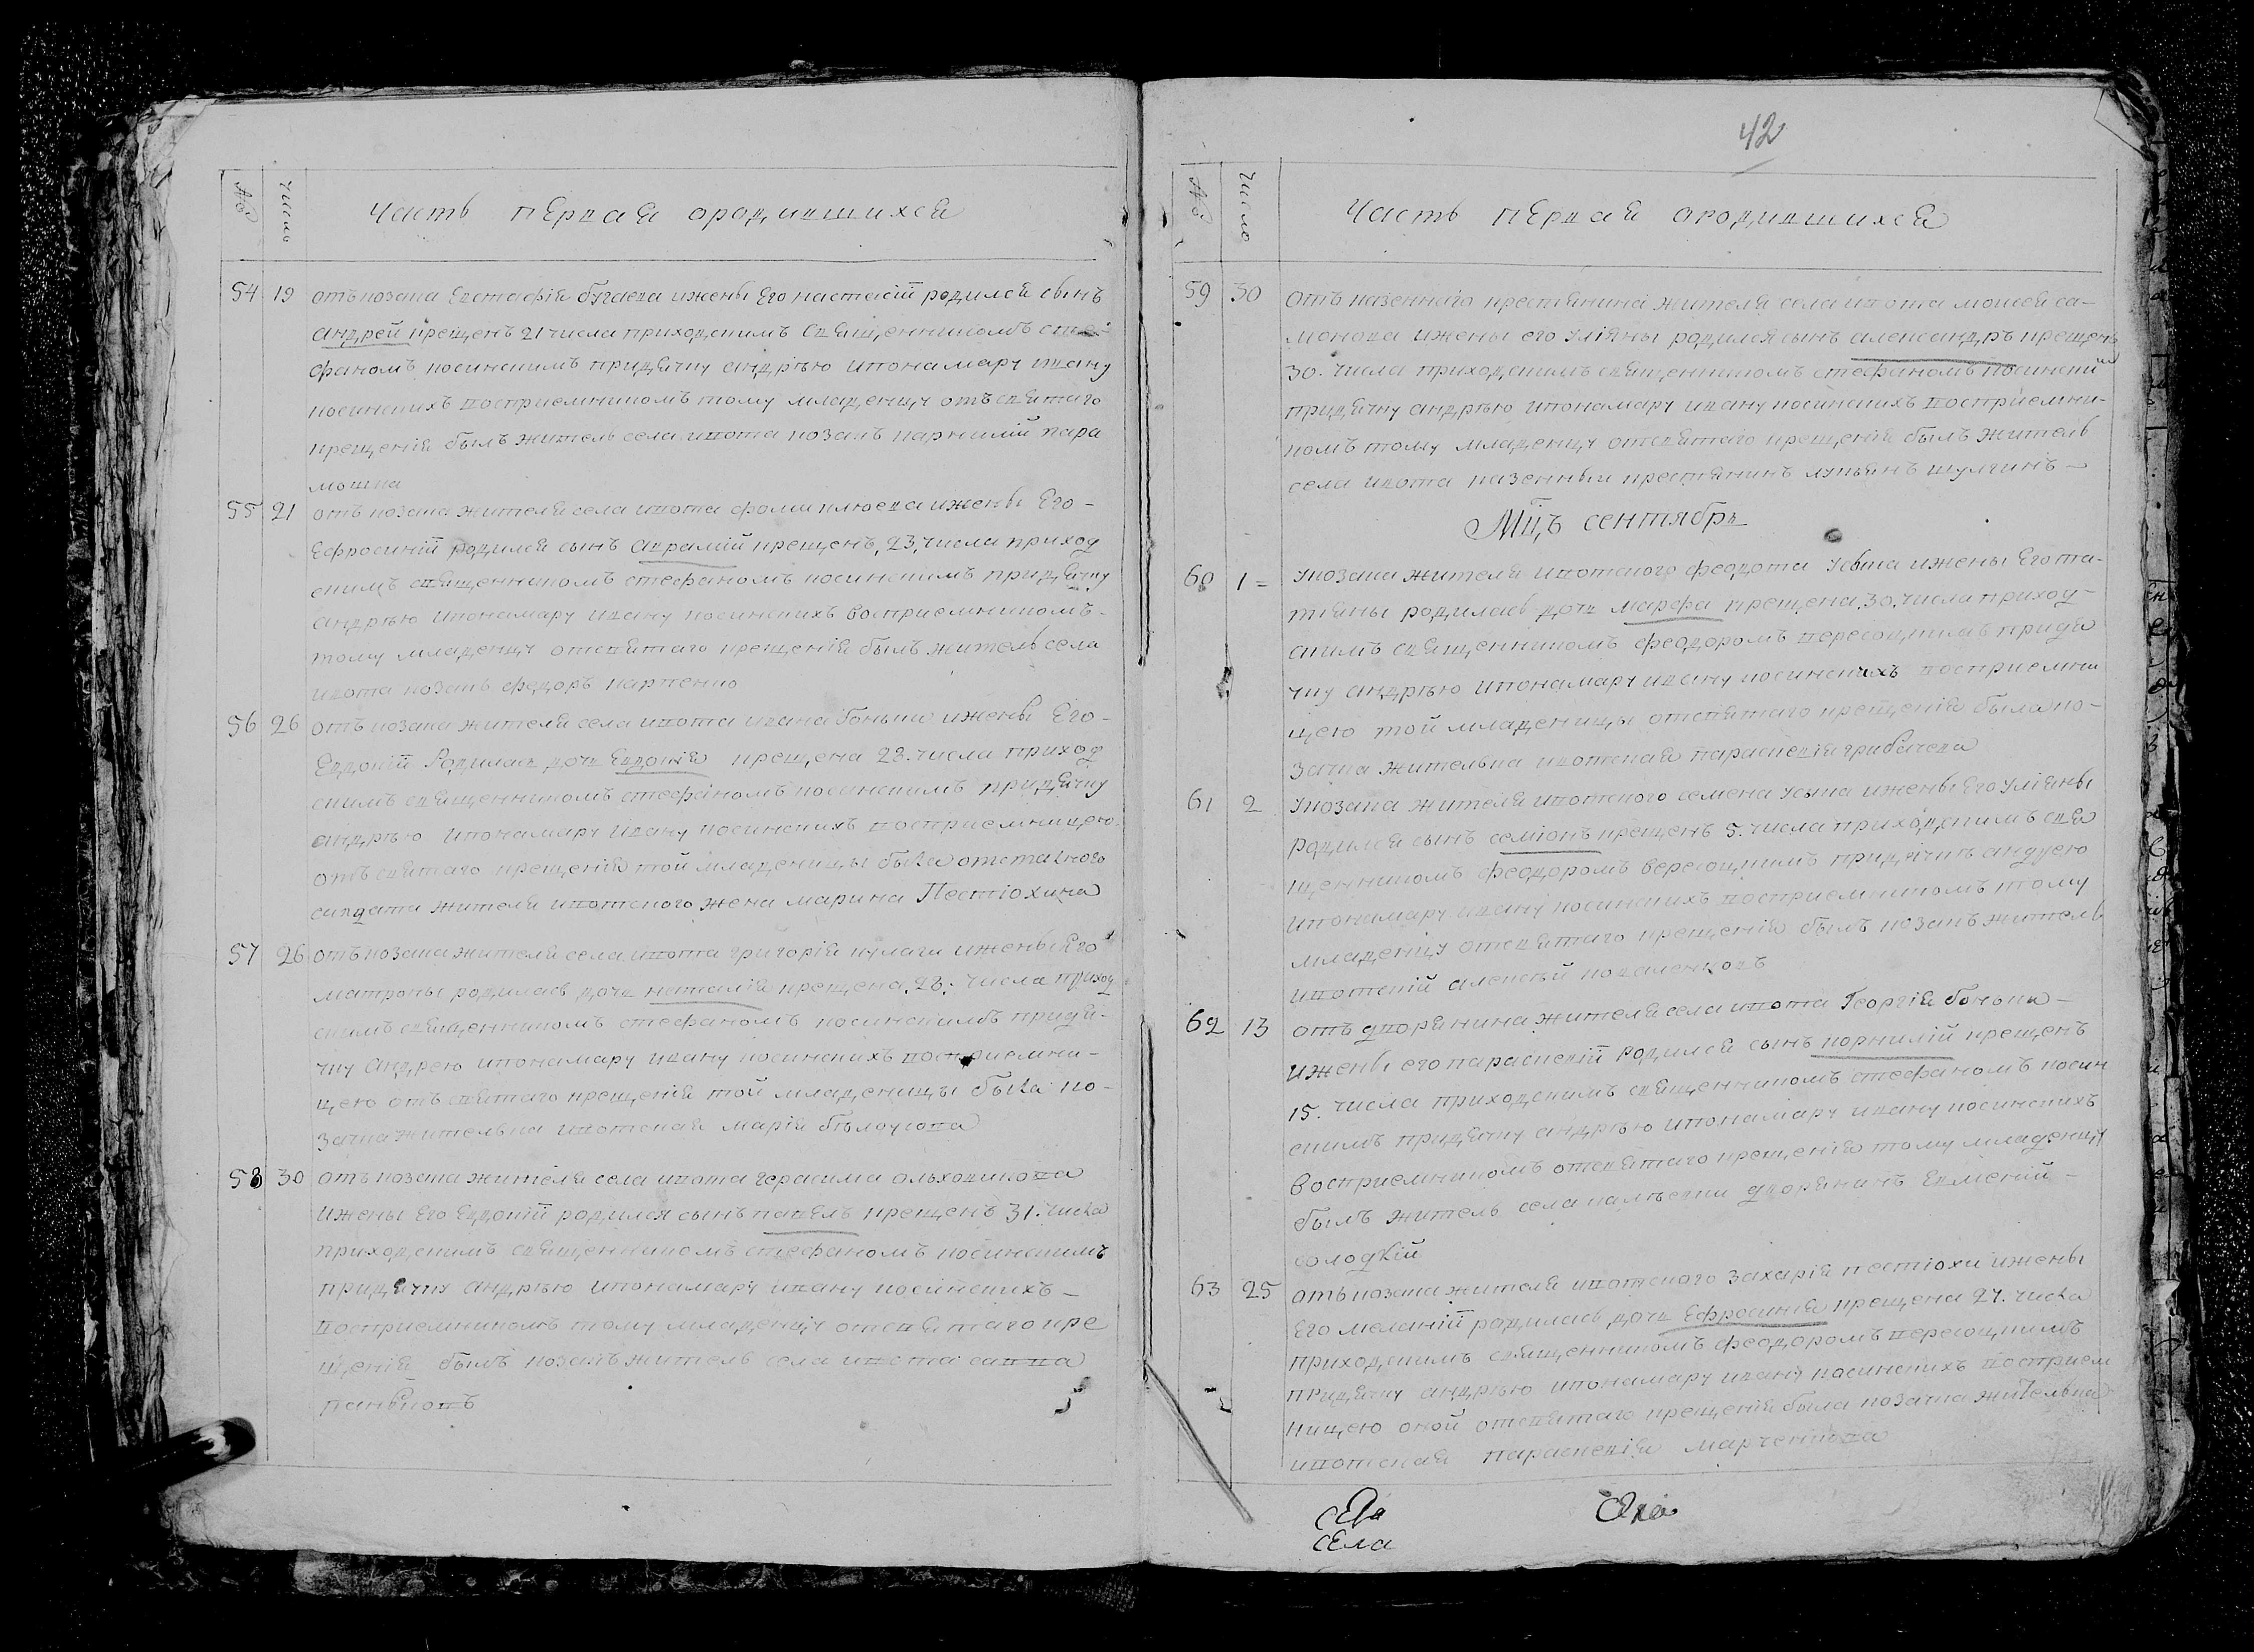 №
Число
Часть первая ородившихся
54 19 отъ козака Евстафія бугаева ижены Его настасіи родился сынъ
андрей крещенъ 21 числа приходскимъ священникомъ сте
фаномъ косинскимъ придячку андрѣю ипонамару ивану
косинскихъ восприемникомъ тому младенцу отъ святаго
крещенія былъ житель села ивота козакъ карнилій пара
мошка
55 21 отъ козака жителя села ивота фоми клюева ижены Его
Ефросиніи родился сынъ аврамій крещенъ 23, числа приход
скимъ священникомъ стефаномъ косинскимъ придячку
андрѣю ипонамару ивану косинскихъ восприемникомъ
тому младенцу отсвятаго крещенія былъ житель села
ивота козакъ федоръ карпенко
56 26 отъ козака жителя села ивота ивана Гоньки ижены Его
Евдокіи Родилась дочь Евдокія крещена 28. числа приход
скимъ священникомъ стефаномъ косинскимъ придячку
андрѣю ипонамару ивану косинскихъ восприемницею
отъ святаго крещенія той младеницы была отставного
салдата жителя ивотского жена марина Пестюхина
57 26 отъ козака жителя села ивота григорія кулаги ижены Его
матроны родилась дочь наталія крещена 28: числа приход
скимъ священникомъ стефаномъ косинскимъ придя-
чку андрею ипонамару ивану косинскихъ восприемни-
цею отъ святаго крещенія той младеницы была ко-
зачка жителька ивотская марія бѣлоусова
58 30 отъ козака жителя села ивота герасима ольховикова
ижены Его Евдокіи родился сынъ павелъ крещенъ 31. числа
приходскимъ священникомъ стефаномъ косинскимъ
придячку андрѣю ипонамару ивану косинскихъ
восприемникомъ тому младенцу отсвятаго кре
щенія былъ козакъ житель села ивота савва
панковъ
42
№
Число
Часть первая ородившихся
59 30 отъ казеннаго крестянина жителя села ивота мойсея са-
монова ижены его уліяны родился сынъ александръ крещенъ
30. числа приходскимъ священникомъ стефаномъ косинским
придячку андрѣю ипонамару ивану косинскихъ восприемни-
комъ тому младенцу отсвятаго крещенія былъ житель
села ивота казенный крестянинъ лукьянъ шулгинъ
Мцъ сентябрь
60 1 укозака жителя ивотского феодота усика ижены Его та-
тяны родилась дочь марфа крещена 30. числа приход-
скимъ священникомъ феодоромъ вересоцкимъ придя
чку андрѣю ипонамару ивану косинскихъ восприемни
цею той младеницы отсвятаго крещенія была ко-
зачка жителька ивотская параскевія грибачева
61 2 укозака жителя ивотского семена усика ижены Его уліяны
родился сынъ семіонъ крещенъ 5. числа приходскимъ свя
щенникомъ феодоромъ вересоцкимъ придячку андрею
ипонамару ивану косинскихъ восприемникомъ тому
младенцу отсвятаго крещенія былъ козакъ житель
ивотскій алексѣй коваленковъ
62 13 отъ дворянина жителя села ивота Георгія боньки
ижены его параскевіи родился сынъ корнилій крещенъ
15. числа приходскимъ священникомъ стефаномъ косин
скимъ придячку андрѣю ипонамару ивану косинскихъ
восприемникомъ отсвятаго крещенія тому младенцу
былъ житель села калѣевки дворянинъ Евмений
солодкій
63 25 отъ козака жителя ивотского захарія пестюхи ижены
Его меланіи родилась дочь Ефросинія крещена 27. числа
приходскимъ священникомъ феодоромъ вересоцкимъ
придячку андрѣю ипонамару ивану косинскихъ восприем
ницею оной отсвятаго крещенія была козачка жителька
ивотская параскевія марченкова
села